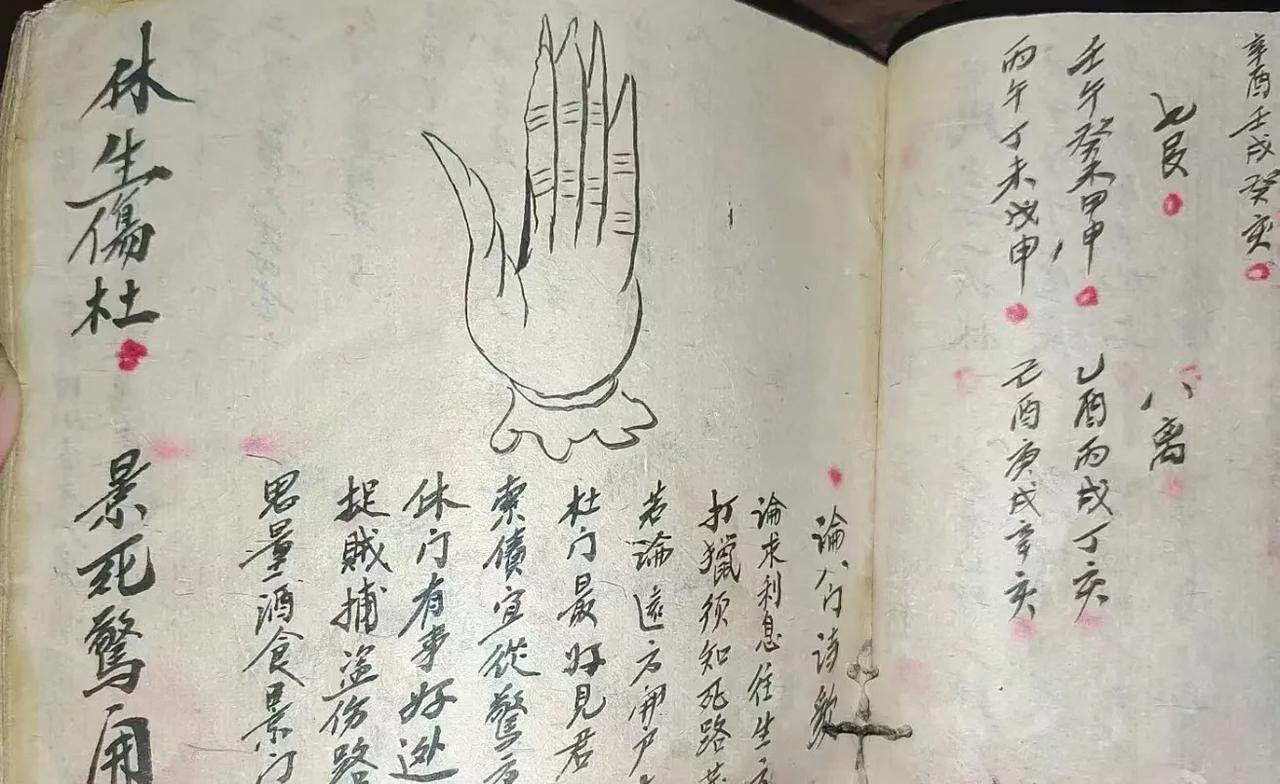 辛酉壬戌癸亥
七艮 八离
壬午癸未甲申 乙酉丙戌丁亥
丙午丁未戊申 己酉庚戌辛亥
論八门诗歌
論求利息往生方
打獵须知死路
若論遠方開户
杜门最好見君
索債宜從驚方
休门有事好
捉賊捕盗伤路
思量酒食景门
休生傷杜 景死驚開